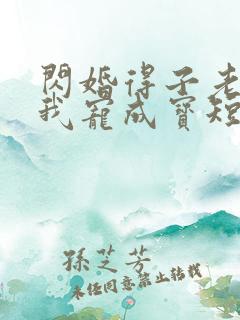 閃婚得子老
我寵成寶短
孫芝芳
未經同意禁止轉載